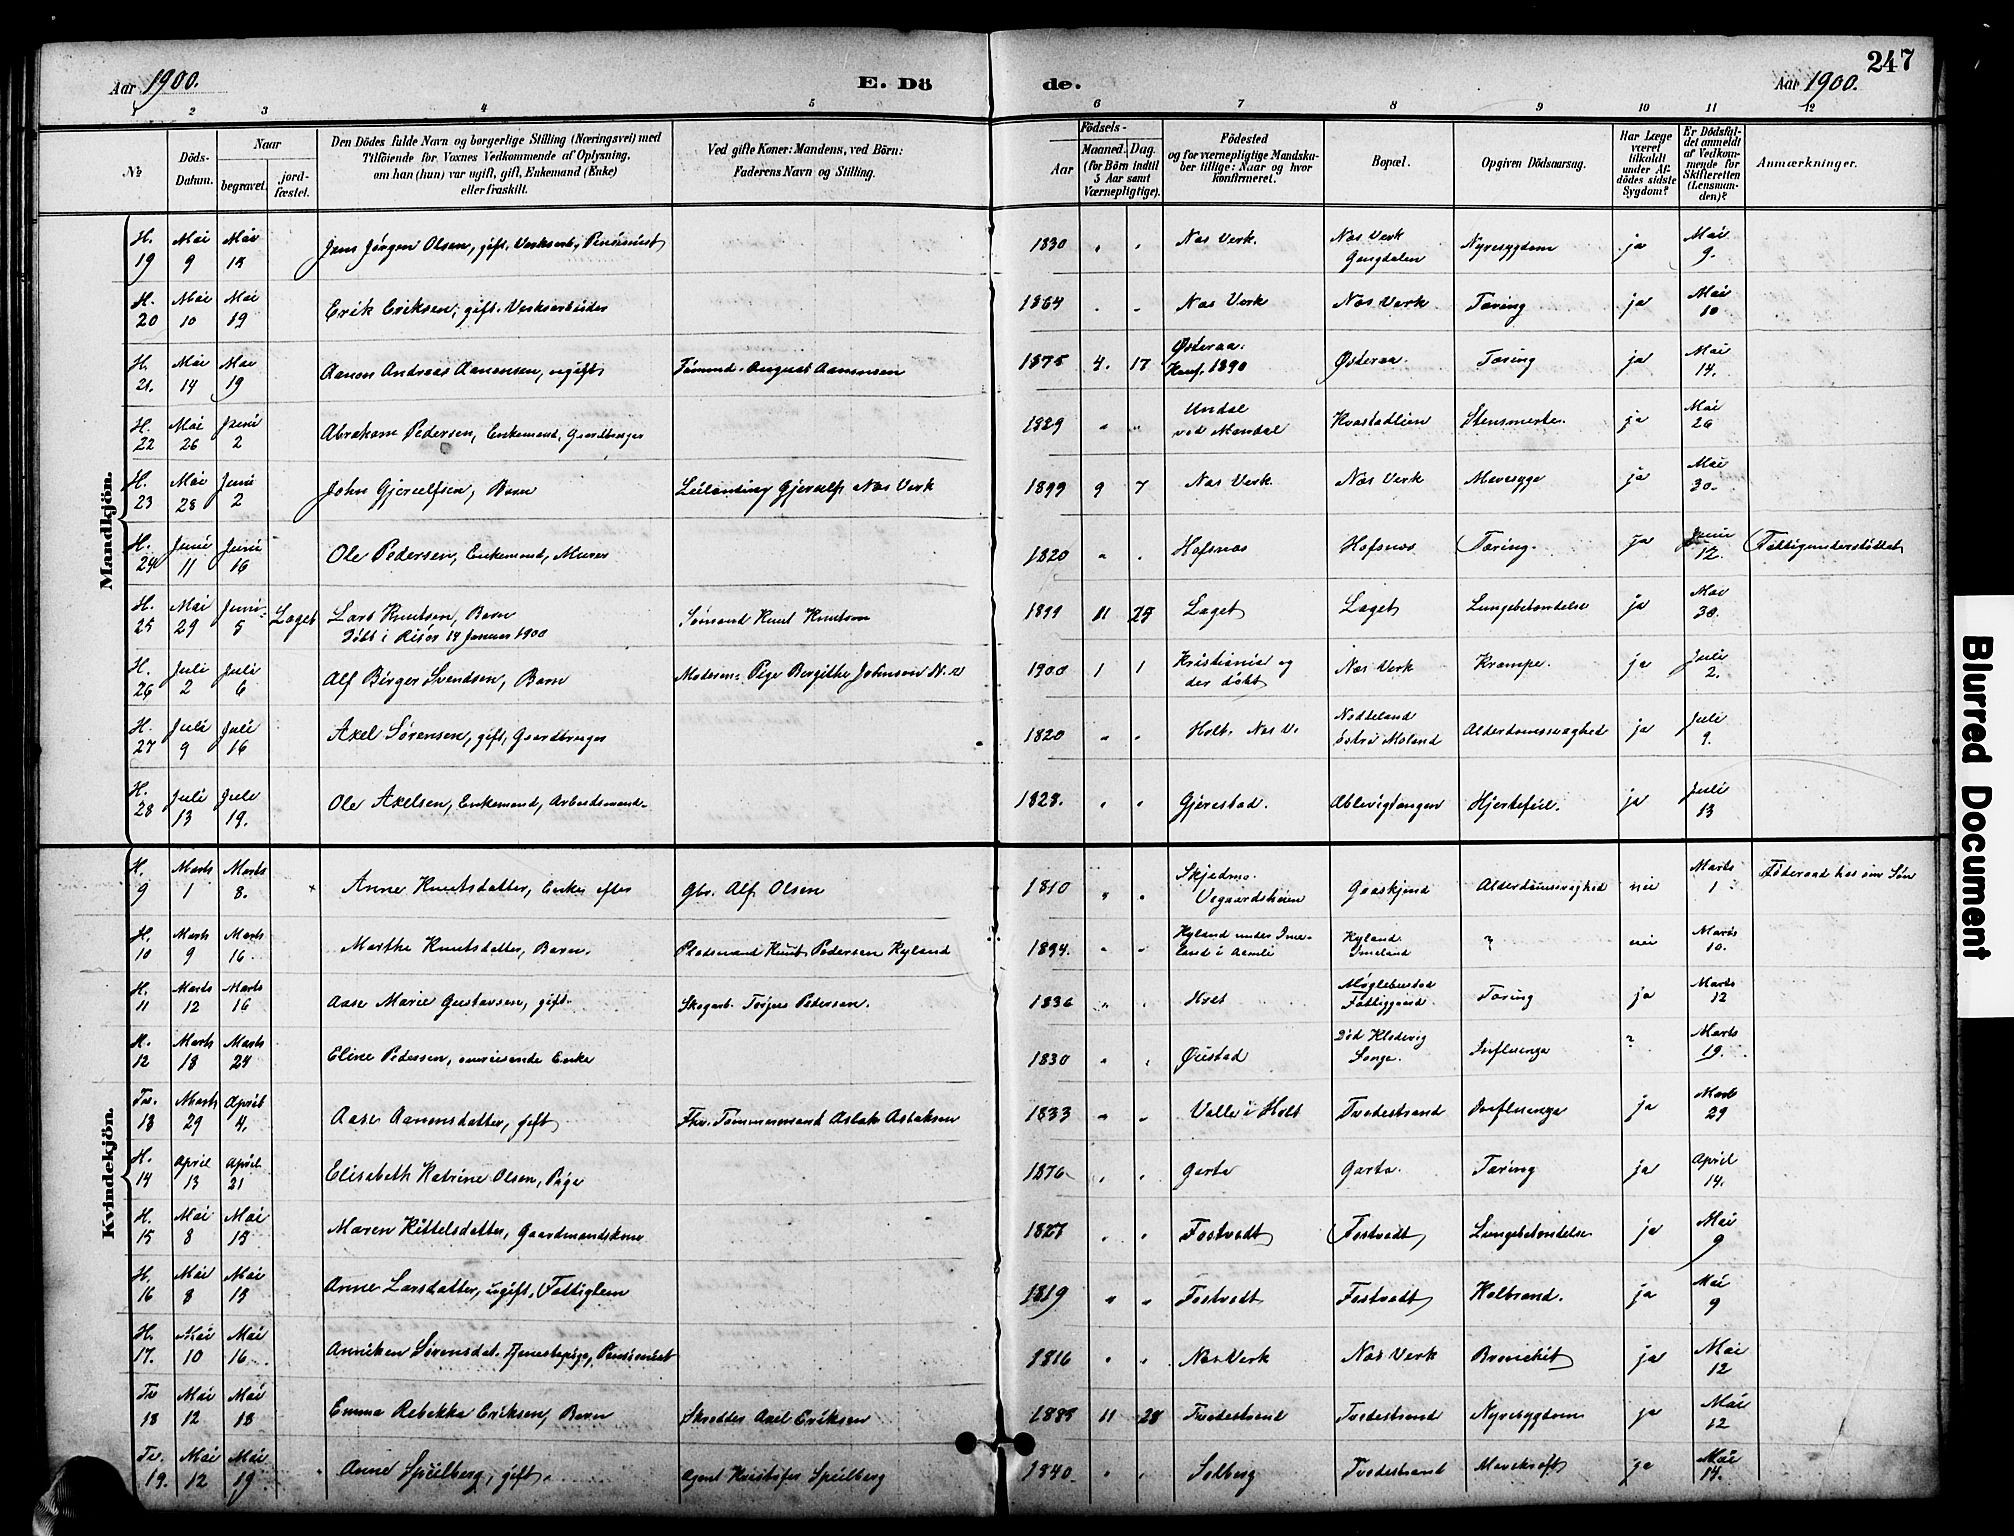 247
Aar 1900. E. Dö de. Aar 1900.
1 2 3 4 5 6 7 8 9 10 11 12
№ Döds-Datum. Naar begravet. jord-fæstet. Den Dödes fulde Navn og borgerlige Stilling (Næringsvei) med Tilföiende for Voxnes Vedkommende af Oplysning, om han (hun) var ugift, gift, Enkemand (Enke) eller fraskilt. Ved gifte Koner: Mandens, ved Börn: Faderens Navn og Stilling. Födsels- Aar Maaned. Dag. (for Börn indtil 5 Aar samt Værnepligtige). Födested og for værnepligtige Mandskaber tillige: Naar og hvor konfirmeret. Bopæl. Opgiven Dödsaarsag. Har Læge været tilkaldt under Afdödes sidste Sygdom? Er Dödsfaldet anmeldt af Vedkommende for Skifteretten (Lensmanden)? Anmærkninger.
Mandkjön.
H. 19 Mai 9 Mai Jens Jørgen Olsen, gift, Verksarb., Pensionist 1830 " " Næs Verk. Næs Verk Nyresygdom ja Mai 9.
H. 20 Mai 10 Mai 19 Erik Eriksen, gift. Verksarbeider 1864 " " Næs Verk Næs Verk Tæring ja Mai 10
H. 21. Mai 14 Mai 19 Aanon Andreas Aanonsen, ugift Tømmd. August Aanonsen 1875 4. 17 Østeraa. Konf. 1890 Østeraa. Tæring ja Mai 14.
H. 22 Mai 26 Juni 2 Abraham Pedersen, Enkemand, Gaardbruger 1829 " " Undal ved Mandal Kvastadlien Stensmerte. ja Mai 26
H. 23 Mai 28 Juni 2 John Gjerulfsen, Barn Gjerulfs. Næs Verk 1899 9 7 Næs Verk Næs Verk Mavesyge ja Mai 30.
H. 24 Juni 11 Juni 16 Ole Pedersen, Enkemand, Murer 1820 " " Hofsnæs Hofsnæs Tæring. ja Juni 12. Fattigunderstöttet
H. 25 Mai 29 Juni 5 Laget Lars Knutsen, Barn
Döbt i Risør 14 Januar 1900 Sømand Knut Knutsen 1899 11 25 Laget Laget Lungebetændelse ja Mai 30.
H. 26 Juli 2 Juli 6 Alf Birger Svendsen, Barn Moderen: Pige Bergithe Johnsen N.V. 1900 1 1 Kristiania og der döbt Næs Verk Krampe. ja Juli 2.
H. 27 Juli 9 Juli 16 Axel Sørensen, gift, Gaardbruger 1820 " " Holt. Næs V. østre Moland Alderdomssvaghed ja Juli 9.
H. 28 Juli 13 Juli 19. Ole Axelsen, Enkemand, Arbeidsmand 1828. " " Gjerestad. Ablevigtangen Hjertefeil. ja Juli 13
Kvindekjön.
H. 9 Marts 1 Marts 8. Anne Knutsdatter, Enke efter Gbr. Alf Olsen 1810 " " Skjedmo. Vegaardsheien Alderdomssvaghed nei Marts 1 Föderaad hos sin Søn
H. 10 Marts 9 Marts 16. Marthe Knutsdatter, Barn. Pladsmand Knut Pedersen Kyland 1894. " " Kyland under Imeland i Aamli Kyland Imeland ? nei Marts 10.
H. 11 Marts 12 Marts 16 Aase Marie Gustavsen, gift. Skogarb. Torjus Pedersen. 1836 " " Holt Møglebustad Fattiggaard Tæring ja Marts 12
H. 12 Marts 18 Marts 24 Eline Pedersen, omreisende Enke 1830 " " Øiestad Död Songe. Influenza ? Marts 19.
Tv. 13 Marts 29 April 4. Aase Aanonsdatter, gift Fhv. Tømmermand Aslak Aslaksen 1833 " " Valle i Holt Tvedestrand Influenza ja Marts 29
H. 14 April 13 April 21 Elisabeth Katrine Olsen, Pige 1876 " " Garta Garta. Tæring ja April 14.
H. 15 Mai 8 Mai 13 Maren Kittelsdatter, Gaardmandskone 1827 " " Fostvedt Fostvedt Lungebetændelse ja Mai 9
H. 16 Mai 8 Mai 13 Anne Larsdatter, ugift, Fattiglem 1819 " " Fostvedt Fostvedt Kolbrand. ja Mai 9
H. 17. Mai 10 Mai 16 Anniken Sørensdat. Tjenestepige, Pensionist 1816 " " Næs Verk Næs Verk Bronchit ja Mai 12
Tv. 18 Mai 12 Mai 18 Emma Rebekka Eriksen, Barn Skrædder Axel Eriksen 11 28 Tvedestrand Tvedestrand Nyresygdom ja Mai 12
Tv. 19. Mai 12 Mai 19 Anne Speilberg, gift. Agent Kristofer Speilberg 1840. " " Solberg Tvedestrand Mavekræft ja Mai 14.
Blurred Document